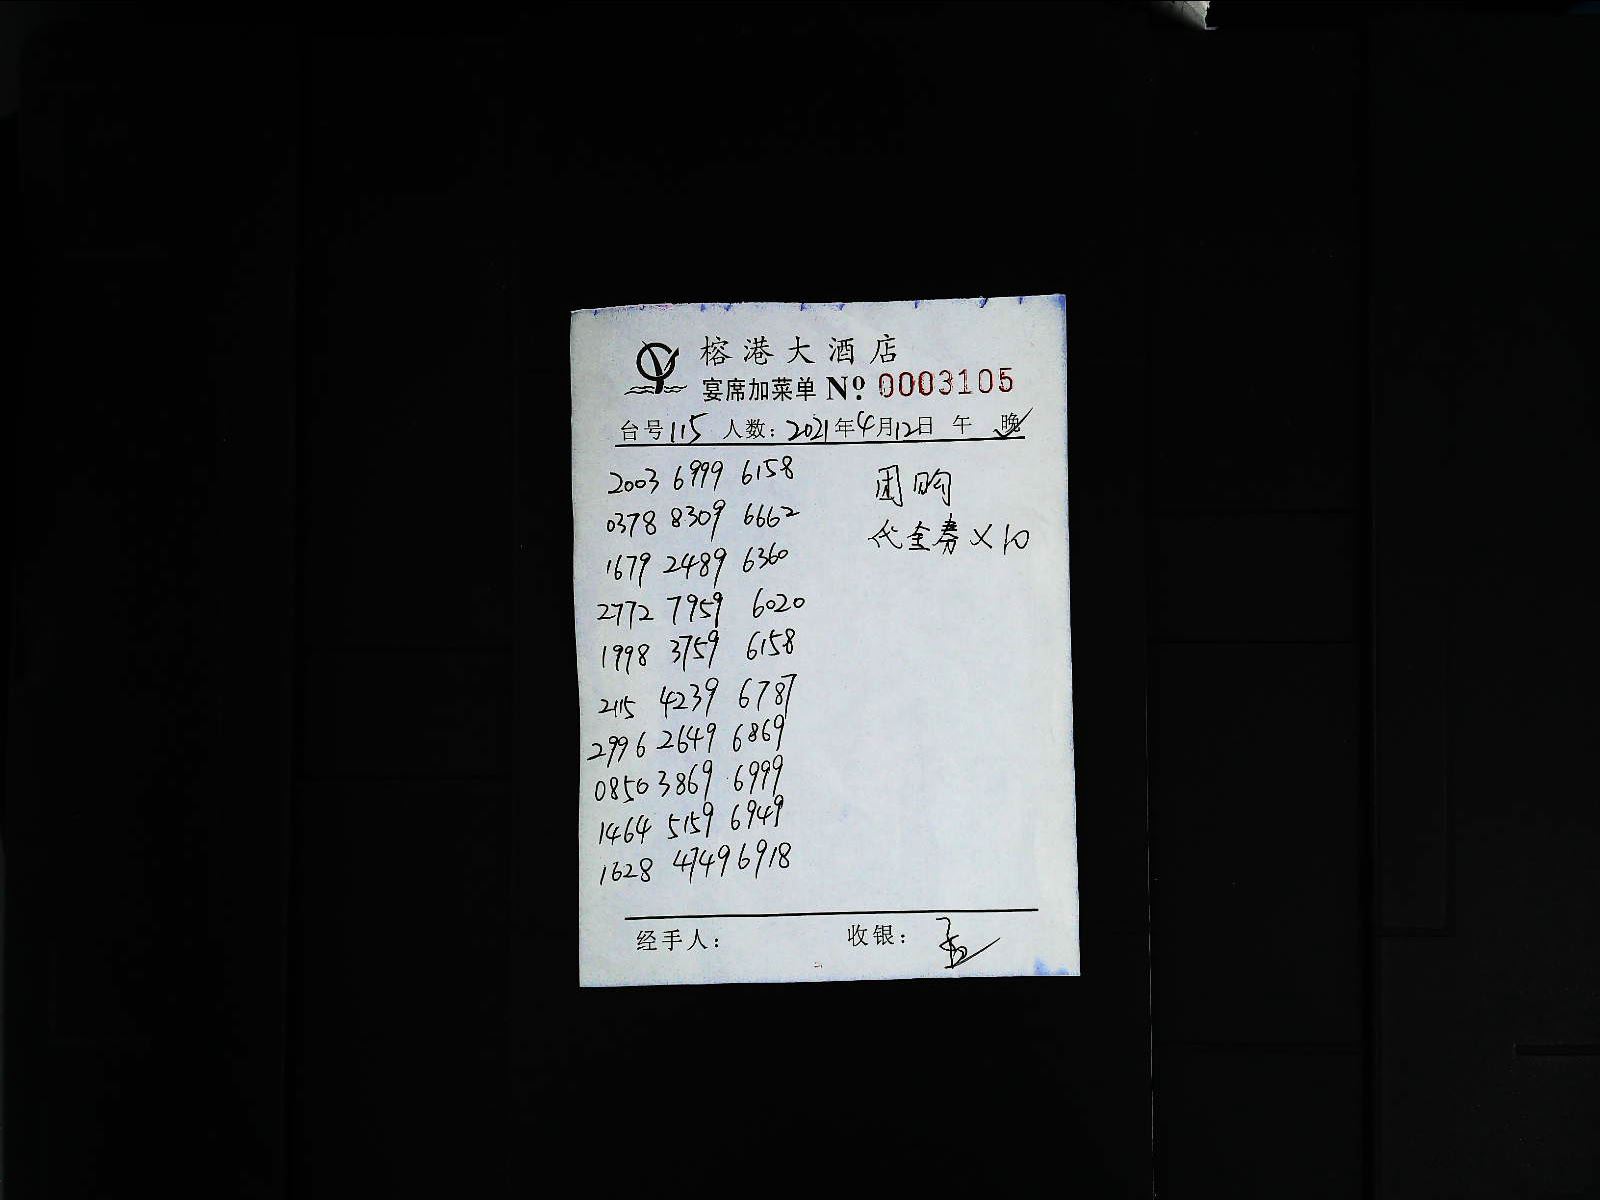 榕港大酒店
宴席加菜单 Nº 0003105
台号115 人数: 2021年4月12日 午 晚
2003 6999 6158 团购
0378 8309 6662 代金券×10
1679 2489 6360
2772 7959 6020
1998 3759 6158
2115 4239 6787
2996 2649 6869
0850 3869 6999
1464 5159 6949
1628 4749 6918
经手人: 收银: